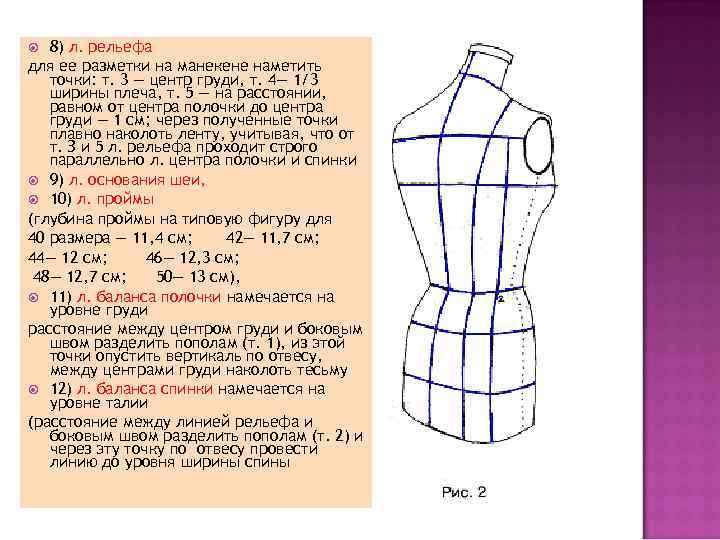 8) л. рельефа
для ее разметки на манекене наметить
точки: т. 3 — центр груди, т. 4— 1/3
ширины плеча, т. 5 — на расстоянии,
равном от центра полочки до центра
груди — 1 см; через полученные точки
плавно наколоть ленту, учитывая, что от
т. 3 и 5 л. рельефа проходит строго
параллельно л. центра полочки и спинки
9) л. основания шеи,
10) л. проймы
(глубина проймы на типовую фигуру для
40 размера — 11,4 см; 42— 11,7 см;
44— 12 см; 46— 12,3 см;
48— 12,7 см; 50— 13 см),
11) л. баланса полочки намечается на
уровне груди
расстояние между центром груди и боковым
швом разделить пополам (т. 1), из этой
точки опустить вертикаль по отвесу,
между центрами груди наколоть тесьму
12) л. баланса спинки намечается на
уровне талии
(расстояние между линией рельефа и
боковым швом разделить пополам (т. 2) и
через эту точку по отвесу провести
линию до уровня ширины спины
2
Рис. 2